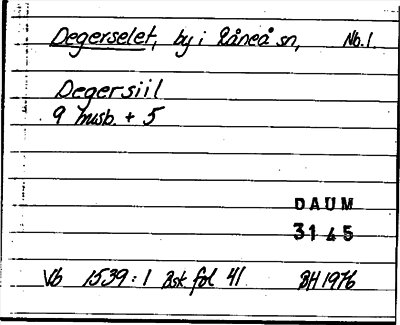 Degerselet, by i Råneå sn, Nb. 1.
Degersiil
9 musb. + 5
DAUM
3145
Vb 1539:1 Bsk fol 41 BH 1976